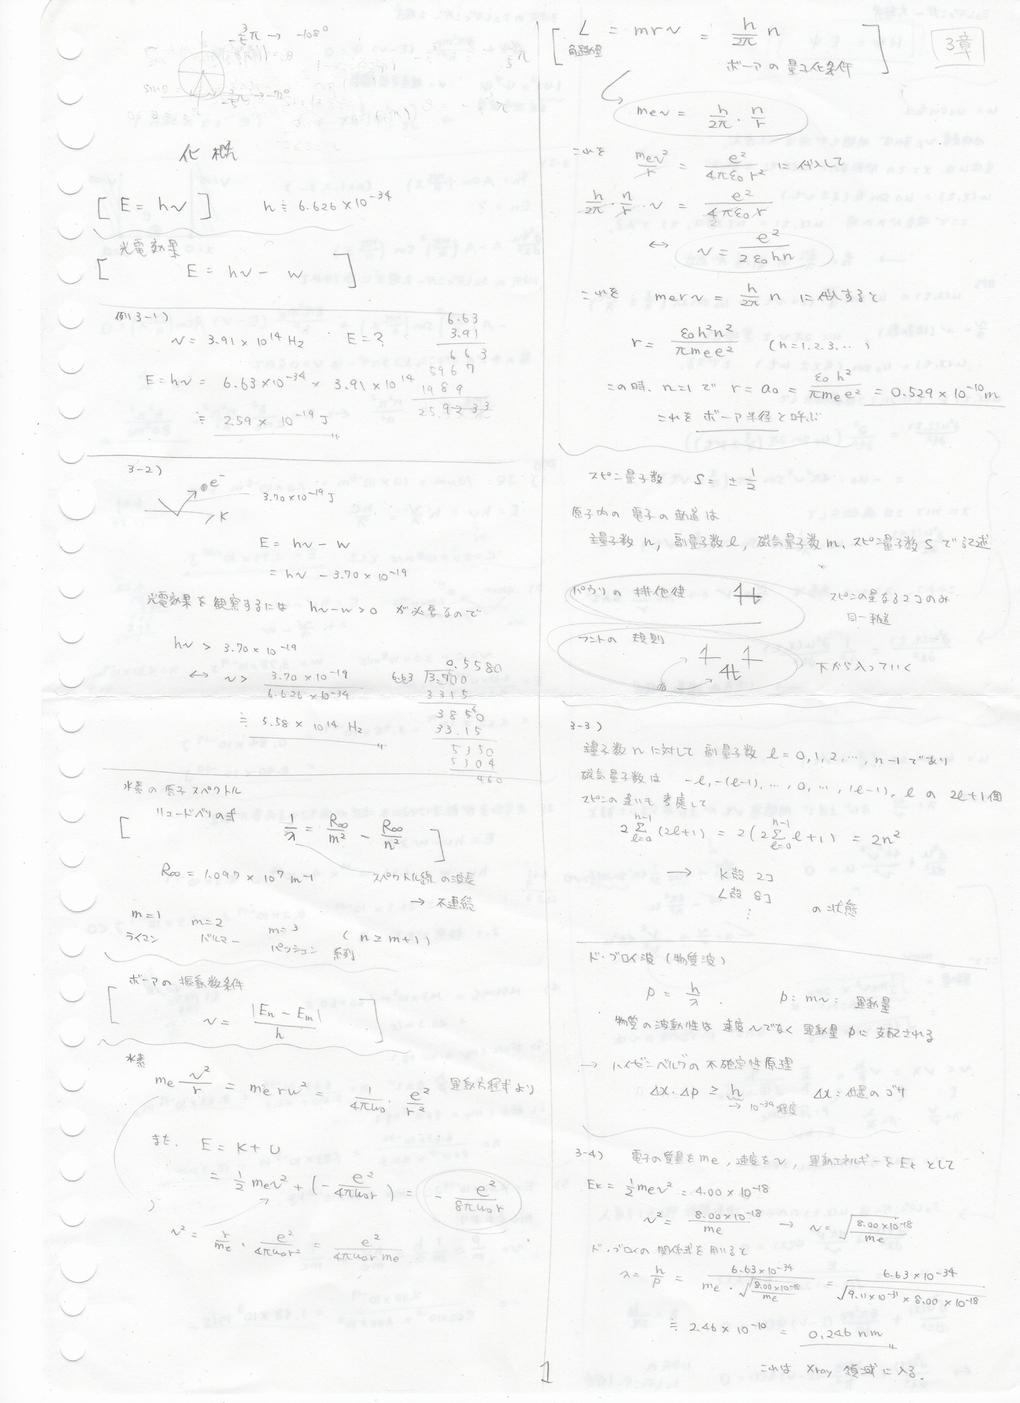 -3/5π → -108°
-2/5π → -72°
化概
[ E = hν ] h ≒ 6.626×10⁻³⁴
光電効果
[ E = hν - w ]
例3-1)
ν = 3.91×10¹⁴Hz E = ?
E = hν = 6.63×10⁻³⁴ × 3.91×10¹⁴
≒ 2.59×10⁻¹⁹J
6.63
3.91
663
5967
1989
25.9233
3-2)
e⁻ 3.70×10⁻¹⁹J
K
E = hν - w
= hν - 3.70×10⁻¹⁹
光電効果を観察するには hν-w>0 が必要なので
hν > 3.70×10⁻¹⁹
⇔ ν > 3.70×10⁻¹⁹/6.626×10⁻³⁴
≒ 5.58×10¹⁴Hz
0.5580
3315
3850
33.15
5350
5104
460
水素の原子スペクトル
リュードベリの式 [ 1/λ = R∞/m² - R∞/n² ]
R∞ = 1.097×10⁷m⁻¹ スペクトル線の波長
→ 不連続
m=1 m=2 m=3 (n≧m+1)
ライマン バルマー パッシェン 系列
ボーアの振動数条件
[ ν = |En - Em|/h ]
水素
me v²/r = me r w² = 1/4πu₀ · e²/r² 運動方程式より
また、 E = K + U
= 1/2 mev² + (- e²/4πu₀r) = - e²/8πu₀r
v² = r/me · e²/4πu₀r² = e²/4πu₀r me
[ L = mrv = h/2π n ] 3章
角運動量 ボーアの量子化条件
mev = h/2π · n/r
これを mev²/r = e²/4πε₀r² に代入して
h/2π · n/r · v = e²/4πε₀r
⇔ v = e²/2ε₀hn
これを merv = h/2π n に代入すると
r = ε₀h²n²/πmee² (n=1.2.3...)
この時、n=1で r = a₀ = ε₀h²/πmee² = 0.529×10⁻¹⁰m
これをボーア半径と呼ぶ
スピン量子数 S = ±1/2
原子内の電子の軌道は
主量子数n, 副量子数ℓ, 磁気量子数m、スピン量子数Sで記述
パウリの排他律 スピンの異なる2コのみ
同一軌道
フントの規則 下から入っていく
3-3)
主量子数nに対して副量子数ℓ=0,1,2,…,n-1であり
磁気量子数は -ℓ,-(ℓ-1),…,0,…,(ℓ-1),ℓの2ℓ+1個
スピンの違いも考慮して
2 Σ[ℓ=0, n-1] (2ℓ+1) = 2(2 Σ[ℓ=0, n-1] ℓ+1) = 2n²
→ K殻 2コ
L殻 8コ
⋮ の状態
ド・ブロイ波 (物質波)
p = h/λ p: mv: 運動量
物質の波動性は速度vでなく運動量pに支配される
→ ハイゼンベルグの不確定性原理
Δx·Δp ≧ h Δx: 位置の
→ 10⁻³⁴程度
3-4) 電子の質量をme, 速度をv, 運動エネルギーをEkとして
Ek = 1/2 mev² = 4.00×10⁻¹⁸
v² = 8.00×10⁻¹⁸/me → v = √(8.00×10⁻¹⁸/me)
ド・ブロイの関係式を用いると
λ = h/p = 6.63×10⁻³⁴/(me·√(8.00×10⁻¹⁸/me)) = 6.63×10⁻³⁴/√(9.11×10⁻³¹×8.00×10⁻¹⁸)
≒ 2.46×10⁻¹⁰ = 0.246nm
これは Xray 領域に入る.
1